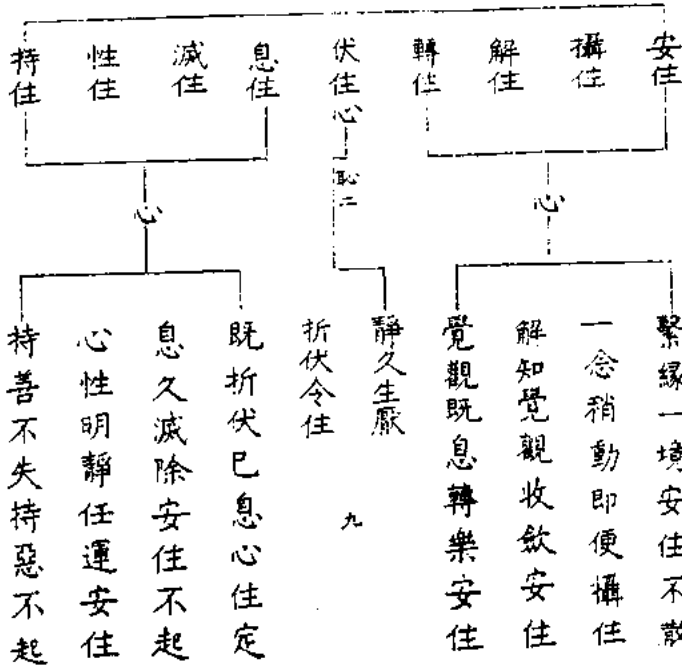 安住
攝住
解住
轉住
伏住心
息住
滅住
性住
持住
心
恥二
心
繫緣一境安住不散
一念稍動即便攝住
解知覺觀收歛安住
覺觀既息轉樂安住
靜久生厭
折伏令住
既折伏已息心住定
息久滅除安住不起
心性明靜任運安住
持善不失持惡不起
九